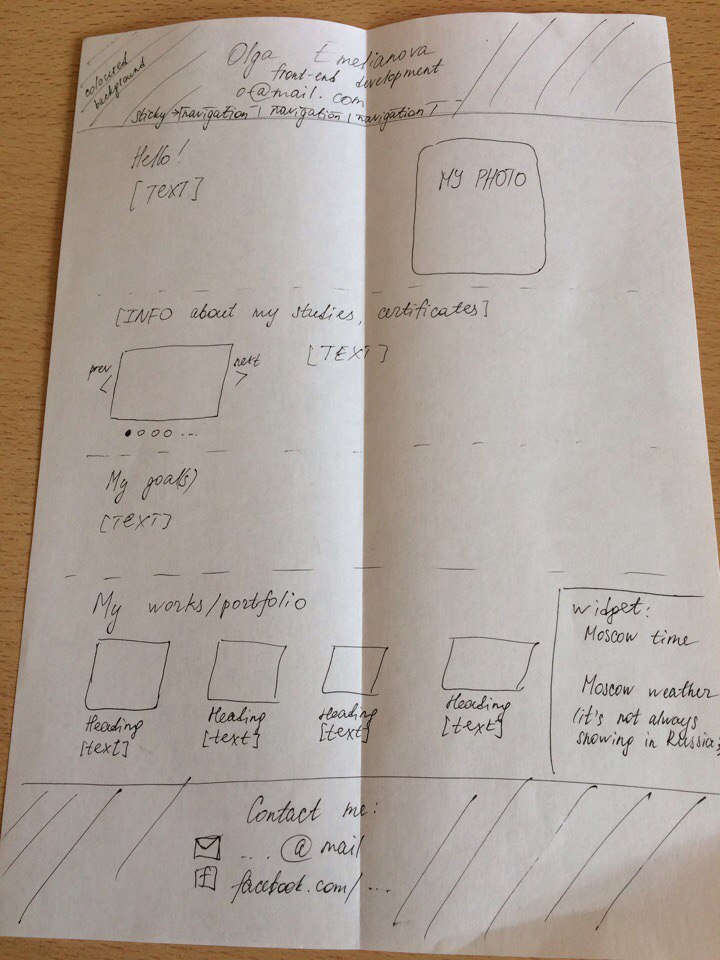 coloured
background
Olga Emelianova
front-end development
o@mail.com
sticky → navigation | navigation | navigation |
Hello!
[TEXT]
MY PHOTO
[INFO about my studies, certificates]
prev
<
next
>
[TEXT]
My goal(s)
[TEXT]
My works/portfolio
Heading
[text]
Heading
[text]
Heading
[text]
Heading
[text]
widget:
Moscow time
Moscow weather
(it's not always
snowing in Russia;
Contact me:
... @ mail
f facebook.com/...